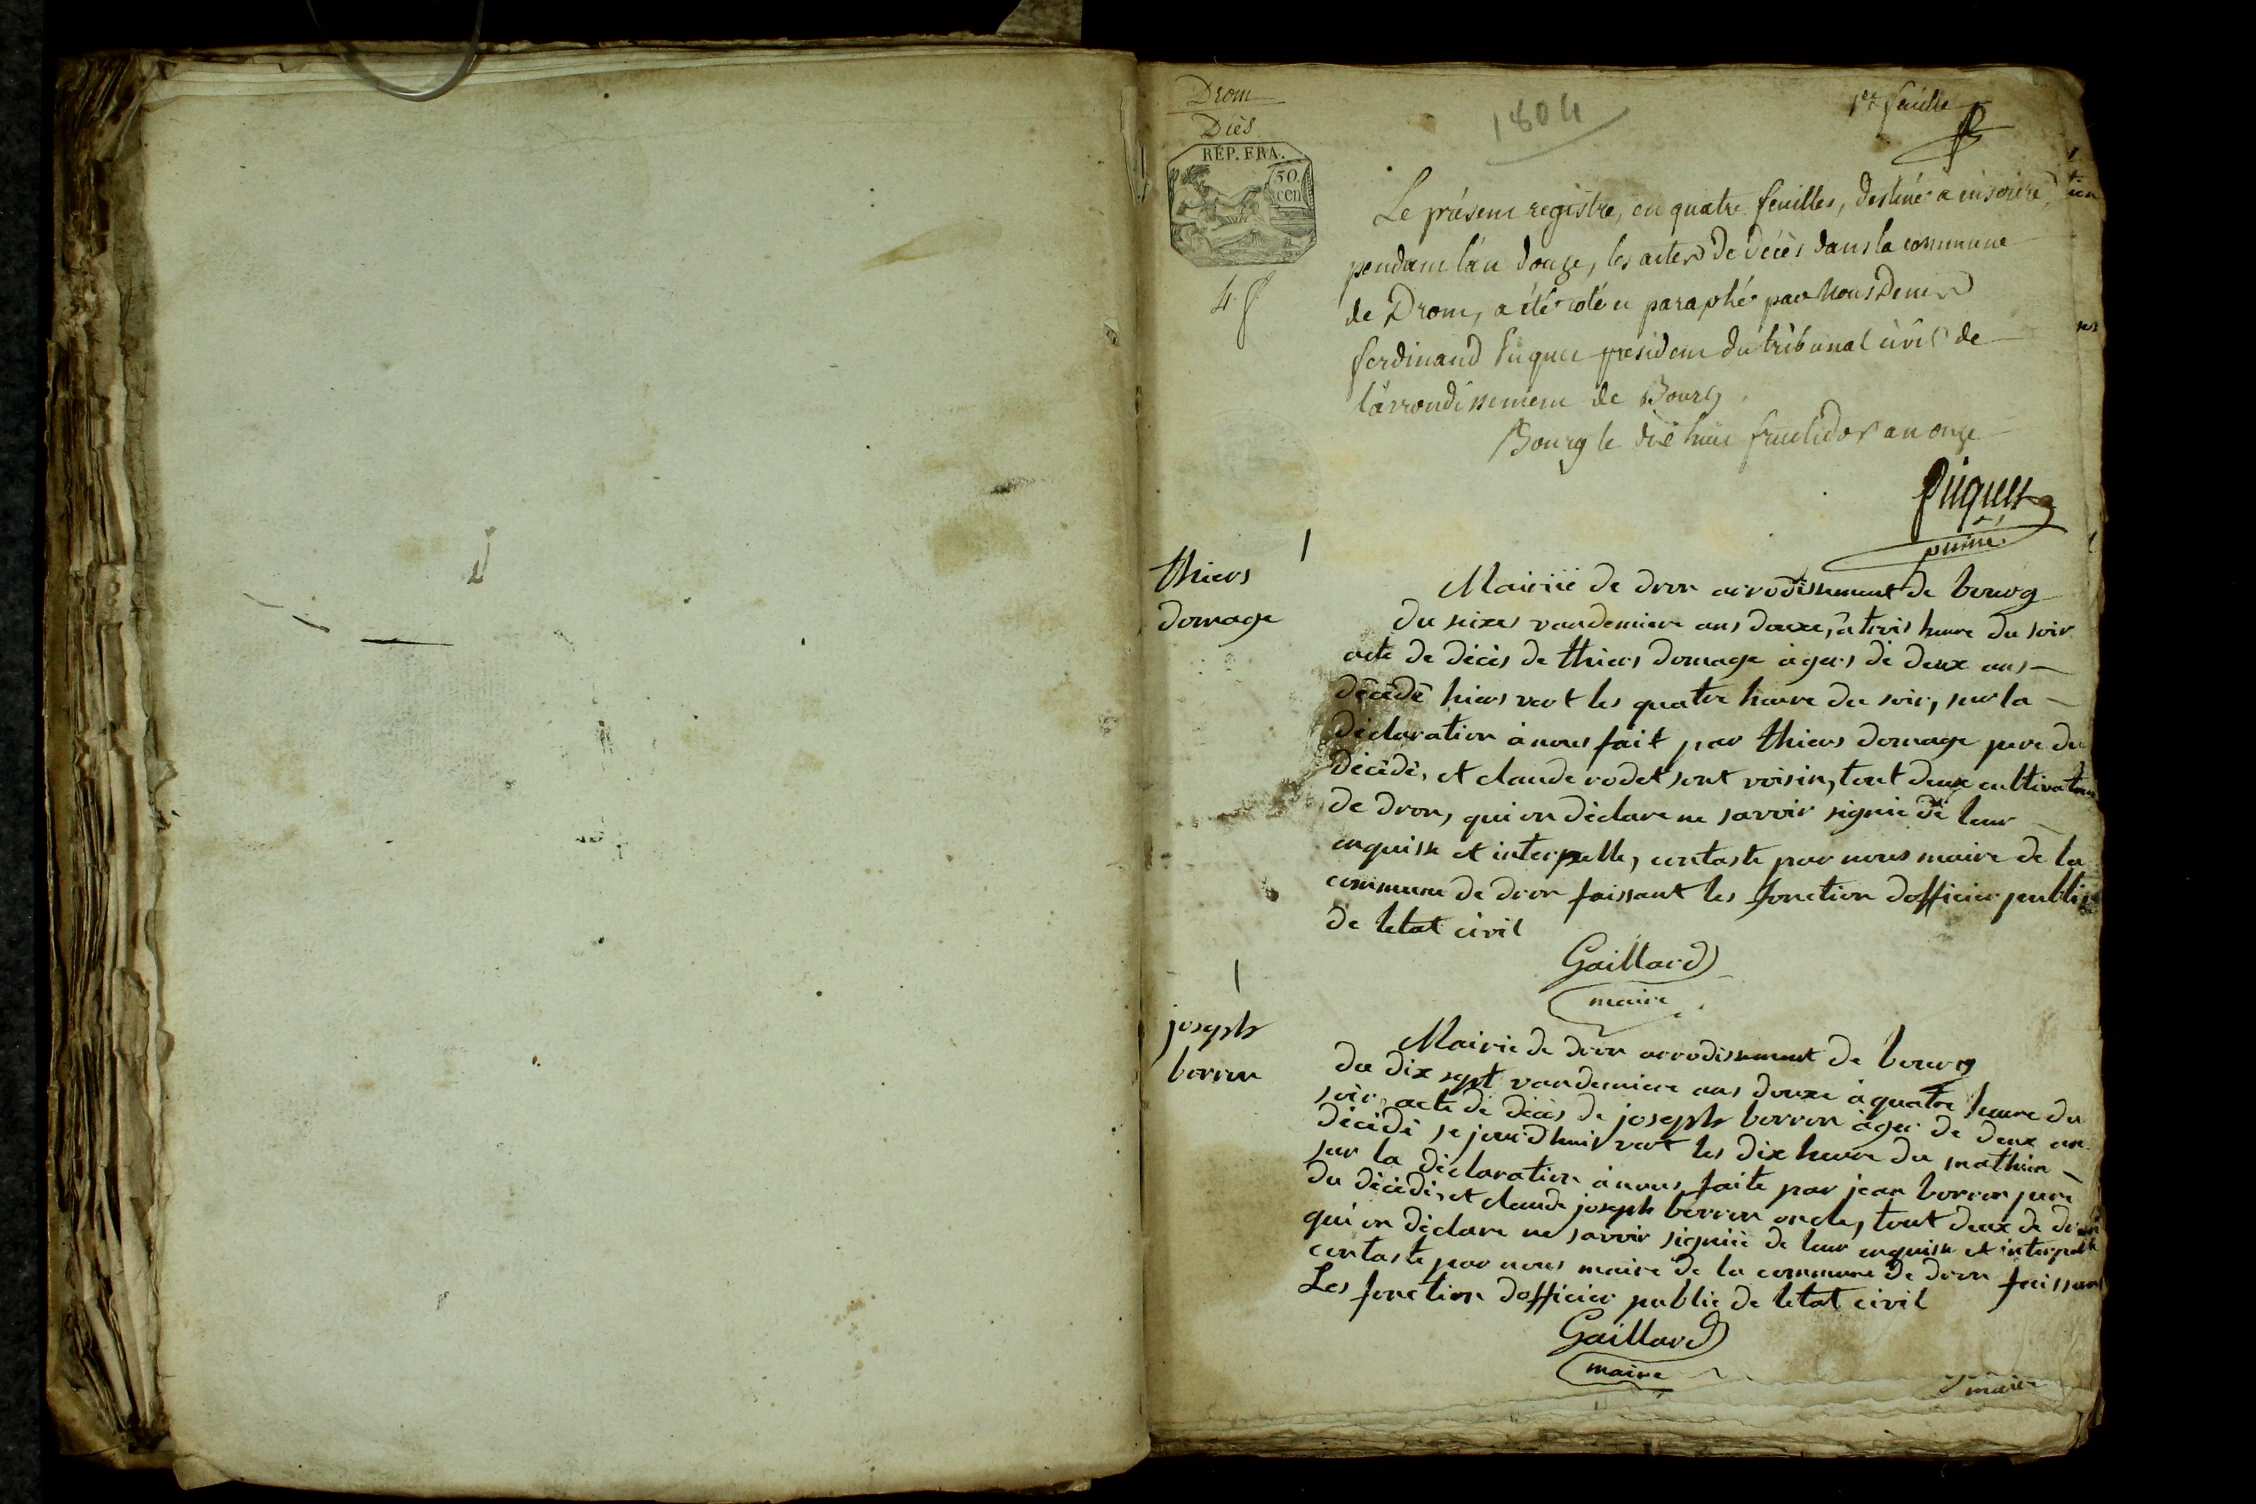 Drom
Décès
RÉP. FRA.
50.
cen
4 f
1804
1er feuille
Le présent registre, en quatre feuilles, destiné a inscrire,
pendant l'an douze, les actes de décès dans la commune
de Drom, a été coté et paraphé par Nous Denis
ferdinand Piquet président du tribunal civil de
l'arrondissement de Bourg
Bourg le dix huit fructidor an onze
Piquet
puiné
1
thiers
domage
Mairiië de dron arrodissement de bourg
du seizes vandemiere ans douxe, à trois heure du soir
acte de décès de thiers domage àgers de deux ans
décédé hiers vert les quatre heure du soir, sur la
déclaration à nous fait par thiers domage pere du
décédé, et claude rodet sont voisin, tout deux cultivateur
de dron, qui on déclare ne savoir signié dé leur
enquisse et interpelle, contaste par nous maire de la
commune de dron faissant les fonction dofficier public
de letat civil
Gaillard
maire
1
joseph
borron
Mairie de dron arrodissement de bourg
du dix sept vandemiere ans douxe à quatre heure du
soir, acte de décès de joseph borron àger de deux an
décédé se jourdhuit vert les dix heure du mathin
sur la déclaration à nous faite par jean borron pere
du décédé, et claude joseph borron oncle, tout deux de dron
qui on déclare ne savoir signiié de leur enquisse et interpelle
contaste par nous maire de la commune de dron faissant
Les fonction dofficier public de letat civil
Gaillard
maire
maire